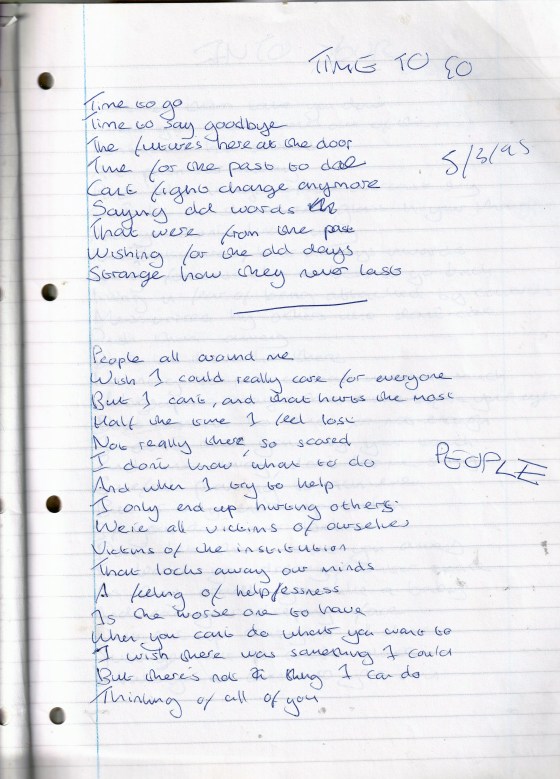 TIME TO GO
Time to go
Time to say goodbye
The futures here at the door
5/3/95
Time for the past to die
Cant fight change anymore
Saying old words
That were from the past
Wishing for the old days
Strange how they never last
People all around me
Wish I could really care for everyone
But I cant, and that hurts the most
Half the time I feel lost
Not really there, so scared
I dont know what to do
PEOPLE
And when I try to help
I only end up hurting others
We're all victims of ourselves
Victims of the institution
That locks away our minds
A feeling of helplessness
Is the worse one to have
When you cant do what you want to
I wish there was something I could
But there's not a thing I can do
Thinking of all of you